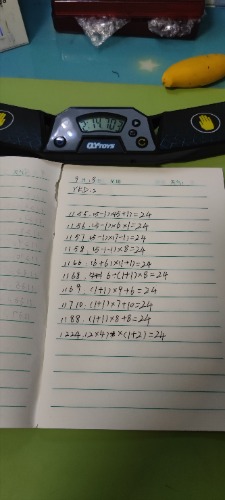 QYTOYS
9.11.8
11.55. (5-1)×(5+1)=24
11.56. (5-1)×6×1=24
11.57. (5-1)×(7-1)=24
11.58. (5-1-1)×8=24
11.66. (6+6)×(1+1)=24
11.68. 6÷(1+1)×8=24
11.69. (1+1)×9+6=24
11.7.10. (1+1)×7+10=24
11.88. (1+1)×8+8=24
1.224. (2×4)×(1+2)=24